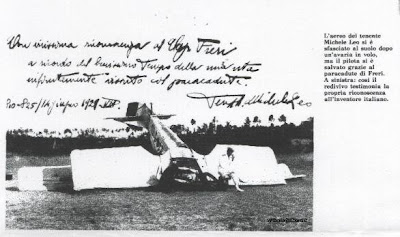 Con vivissima riconoscenza al Sig. Freri
a ricordo del bruttissimo tempo della mia vita
infinitamente risorto col paracadute.
giugno 1928
Ten. Michele Leo
L'aereo del tenente
Michele Leo si è
sfasciato al suolo dopo
un'avaria in volo,
ma il pilota si è
salvato grazie al
paracadute di Freri.
A sinistra: così il
redivivo testimonia la
propria riconoscenza
all'inventore italiano.